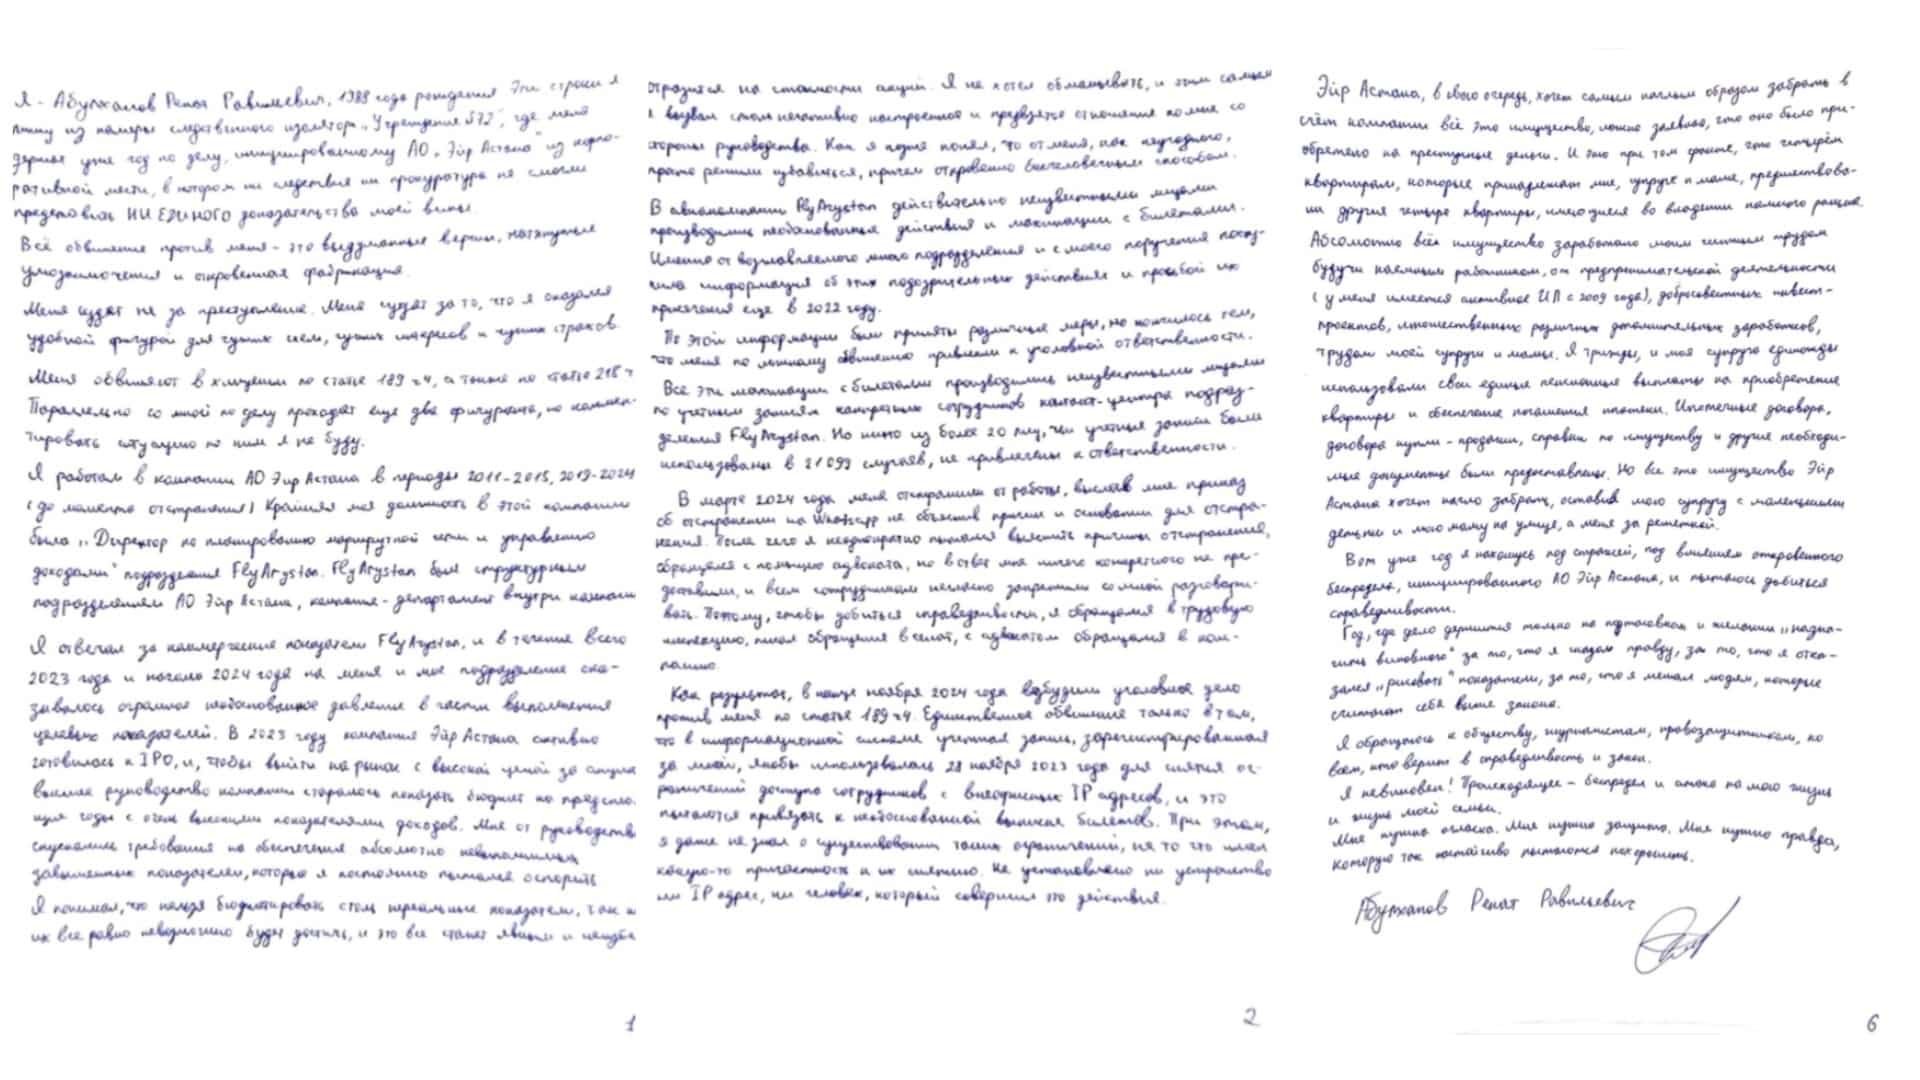 Я - Абулханов Ренат Равильевич, 1988 года рождения. Эти строки я
пишу из камеры следственного изолятора „Учреждения 572", где меня
держат уже год по делу, инициированному АО „Эйр Астана" из корпо-
ративной мести, в котором ни следствие ни прокуратура не смогли
предоставить НИ ЕДИНОГО доказательства моей вины.
Всё обвинение против меня - это выдуманные версии, натянутые
умозаключения и откровенная фабрикация.
Меня судят не за преступление. Меня судят за то, что я оказался
удобной фигурой для чужих схем, чужих интересов и чужих страхов.
Меня обвиняют в хищении по статье 189 ч4, а также по статье 218 ч
Параллельно со мной по делу проходят еще два фигуранта, но коммен-
тировать ситуацию по ним я не буду.
Я работал в компании АО Эйр Астана в периоды 2011-2015, 2019-2024
(до момента отстранения) Крайняя моя должность в этой компании
была „Директор по планированию маршрутной сети и управлению
доходами" подразделения FlyArystan. FlyArystan был структурным
подразделением АО Эйр Астана, компания-департамент внутри компании
Я отвечал за коммерческие показатели FlyArystan, и в течение всего
2023 года и начало 2024 года на меня и мое подразделение ока-
зывалось огромное необоснованное давление в части выполнения
целевых показателей. В 2023 году компания Эйр Астана активно
готовилась к IPO, и, чтобы выйти на рынок с высокой ценой за акции
высшее руководство компании старалось показать бюджет на предстоя-
щие годы с очень высокими показателями доходов. Мне от руководства
спускались требования на обеспечение абсолютно невыполнимых
завышенных показателей, которые я постоянно пытался оспорить
Я понимал, что нельзя бюджетировать столь нереальные показатели, так к
их все равно невозможно будет достичь, и это все станет явным и неизбе
отразится на стоимости акций. Я не хотел обманывать, и этим самым
я вызвал столь негативно настроенное и предвзятое отношение ко мне со
стороны руководства. Как я позже понял, что от меня, как неугодного,
просто решили избавиться, причем откровенно бесчеловечным способом.
В авиакомпании FlyArystan действительно неизвестными лицами
производились необоснованные действия и махинации с билетами.
Именно от возглавляемого мною подразделения и с моего поручения посту-
пила информация об этих подозрительных действиях и просьбой их
пресечения еще в 2022 году.
По этой информации были приняты различные меры, но кончилось тем,
что меня по ложному обвинению привлекли к уголовной ответственности.
Все эти махинации с билетами производились неизвестными лицами
по учетным записям конкретных сотрудников контакт-центра подраз-
деления FlyArystan. Но никто из более 20 лиц, чьи учетные записи были
использованы в 21099 случаев, не привлечены к ответственности.
В марте 2024 года меня отстранили от работы, выслав мне приказ
об отстранении на WhatsApp не объяснив причин и оснований для отстра-
нения. После чего я неоднократно пытался выяснить причины отстранения,
обращался с помощью адвоката, но в ответ мне ничего конкретного не пре-
доставили, и всем сотрудникам негласно запретили со мной разговари-
вать. Поэтому, чтобы добиться справедливости, я обращался в трудовую
инспекцию, писал обращения в сенат, с адвокатом обращался в ком-
панию.
Как результат, в конце ноября 2024 года возбудили уголовное дело
против меня по статье 189 ч4. Единственное обвинение только в том,
что в информационной системе учетная запись, зарегистрированная
за мной, якобы использовалась 28 ноября 2023 года для снятия ог-
раничений доступа сотрудников с внеофисных IP адресов, и это
пытаются привязать к необоснованной выписке билетов. При этом,
я даже не знал о существовании таких ограничений, не то что имел
какую-то причастность к их снятию. Не установлено ни устройство
ни IP адрес, ни человек, который совершил это действия.
1
2
Эйр Астана, в свою очередь, хочет самым наглым образом забрать в
счёт компании всё это имущество, ложно заявляя, что оно было при-
обретено на преступные деньги. И это при том факте, что четырём
квартирам, которые принадлежат мне, супруге и маме, предшествова-
ли другие четыре квартиры, имеющиеся во владении намного раньше.
Абсолютно всё имущество заработано моим честным трудом
будучи наемным работником, от предпринимательской деятельности
(у меня имеется активное ИП с 2009 года), добросовестных инвест-
проектов, множественных различных дополнительных заработков,
трудом моей супруги и мамы. Я трижды, и моя супруга единожды
использовали свои единые пенсионные выплаты на приобретение
квартиры и обеспечение погашения ипотеки. Ипотечные договора,
договора купли-продажи, справки по имуществу и другие необходи-
мые документы были предоставлены. Но все это имущество Эйр
Астана хочет нагло забрать, оставив мою супругу с маленькими
детьми и мою маму на улице, а меня за решеткой.
Вот уже год я нахожусь под стражей, под влиянием откровенного
беспредела, инициированного АО Эйр Астана, и пытаюсь добиться
справедливости.
Год, где дело держится только на подтасовках и желании „назна-
чить виновного" за то, что я сказал правду, за то, что я отка-
зался „рисовать" показатели, за то, что я мешал людям, которые
считают себя выше закона.
Я обращаюсь к обществу, журналистам, правозащитникам, ко
всем, кто верит в справедливость и закон.
Я невиновен! Происходящее - беспредел и атака на мою жизнь
и жизнь моей семьи.
Мне нужна огласка. Мне нужна защита. Мне нужна правда,
которую так настойчиво пытаются похоронить.
Абулханов Ренат Равильевич
6